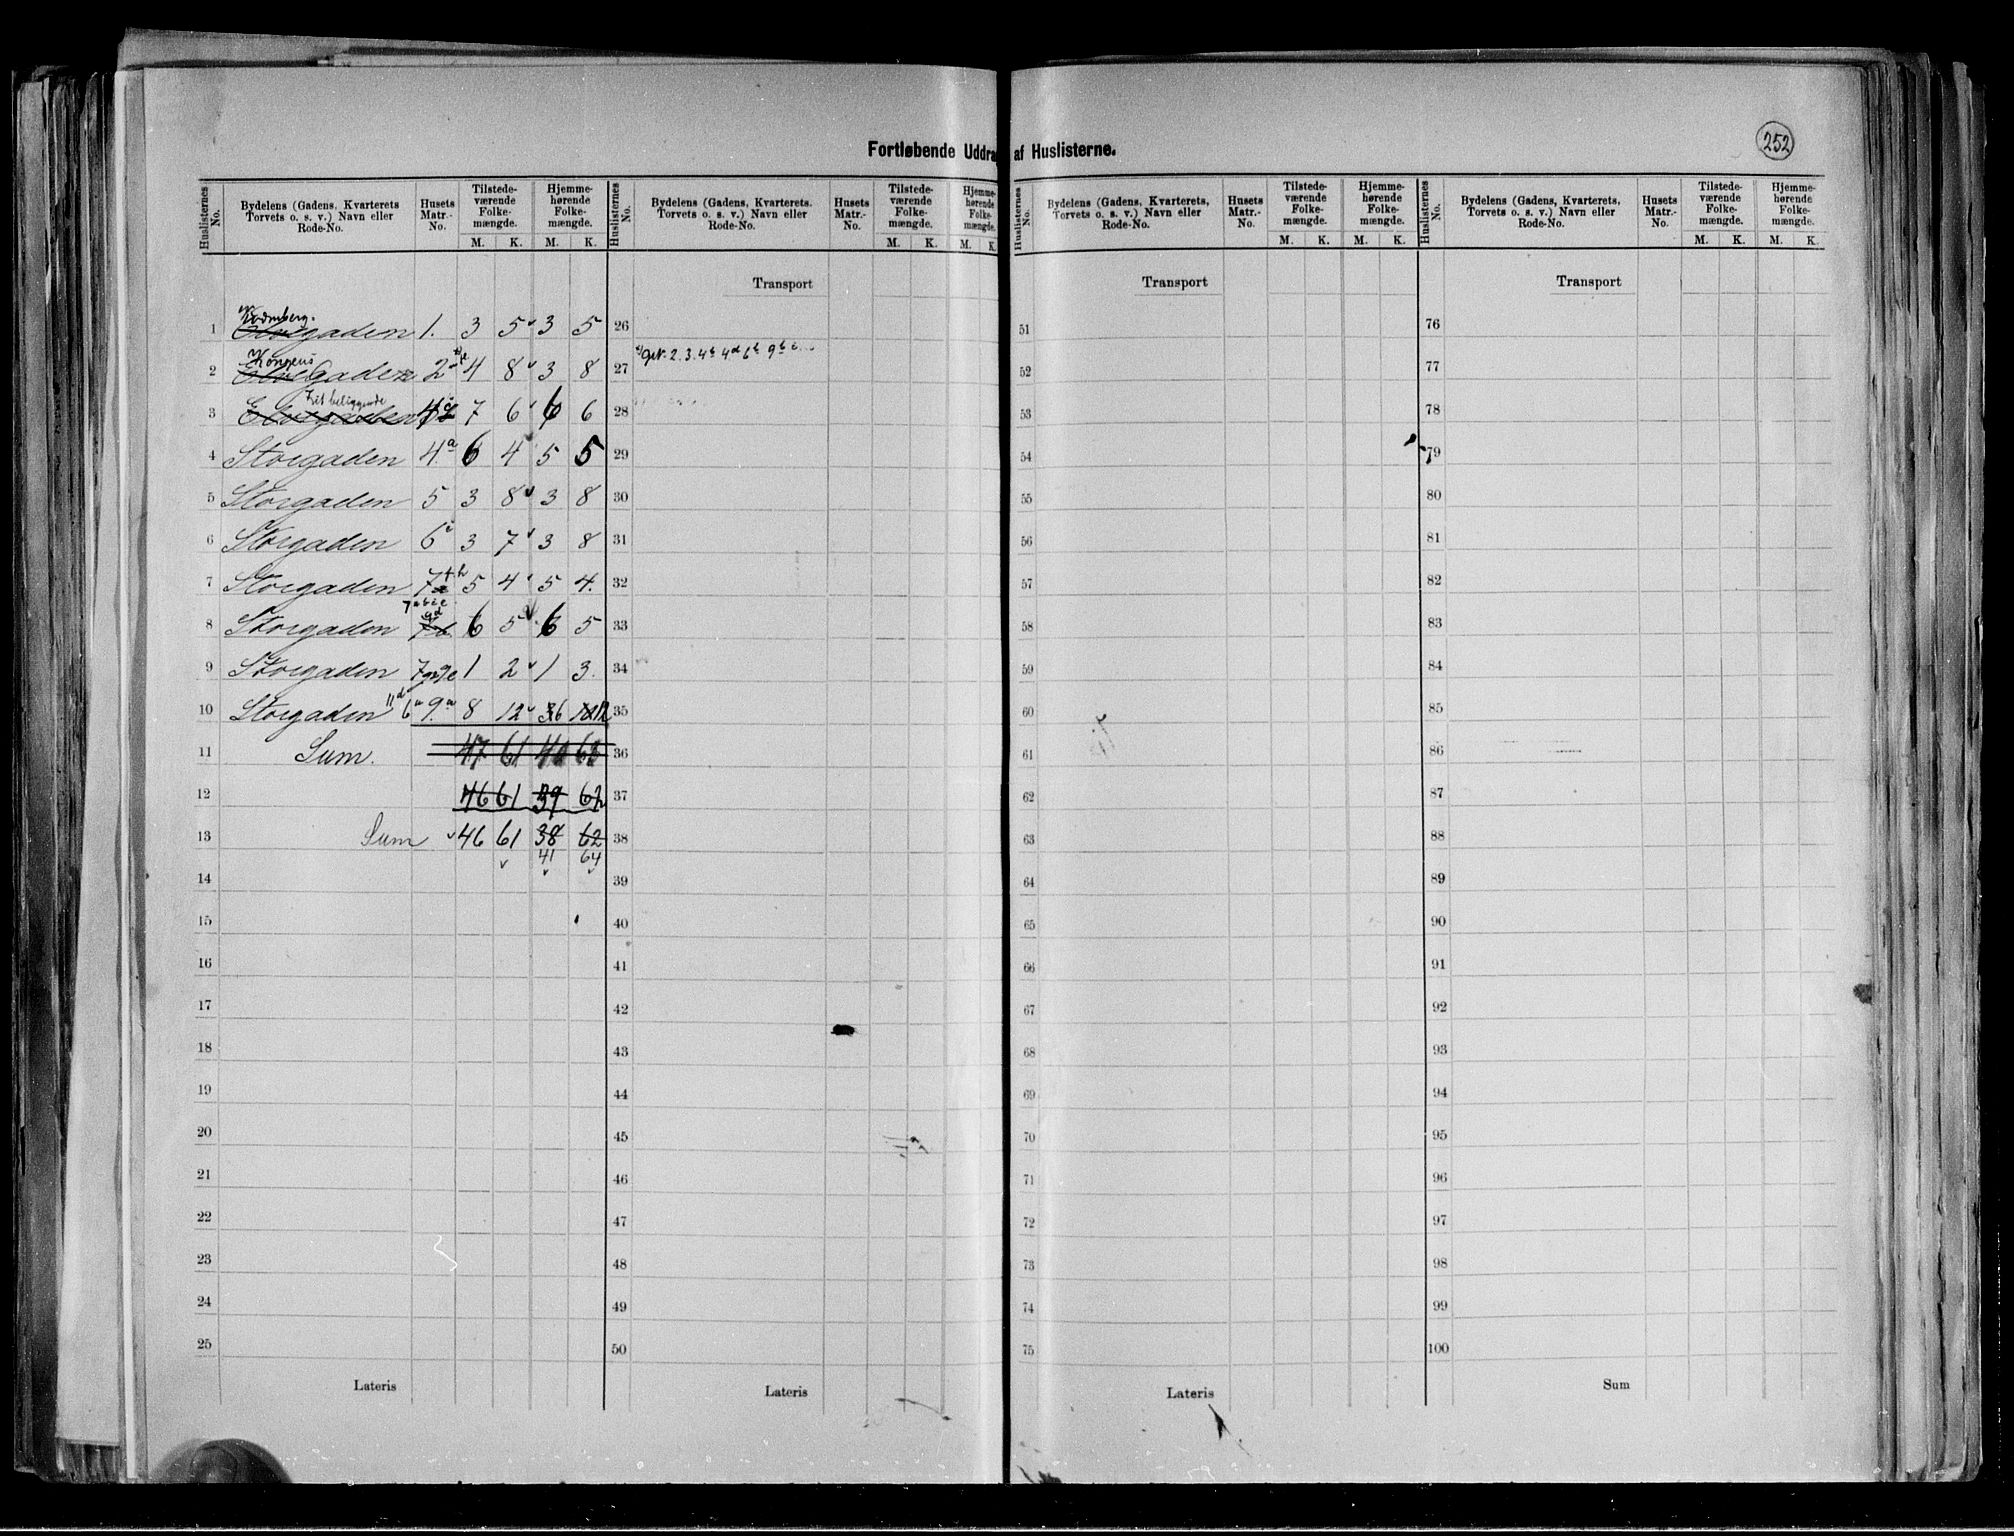 Fortløbende Uddrag af Huslisterne.
252
Huslisternes No. | Bydelens (Gadens, Kvarterets Torvets o. s. v.) Navn eller Rode-No. | Husets Matr.-No. | Tilstedeværende Folkemængde. M. K. | Hjemmehørende Folkemængde. M. K.
Huslisternes No. | Bydelens (Gadens, Kvarterets, Torvets o. s. v.) Navn eller Rode-No. | Husets Matr.-No. | Tilstedeværende Folkemængde. M. K. | Hjemmehørende Folkemængde. M. K.
Huslisternes No. | Bydelens (Gadens, Kvarterets, Torvets o. s. v.) Navn eller Rode-No. | Husets Matr.-No. | Tilstedeværende Folkemængde. M. K. | Hjemmehørende Folkemængde. M. K.
Huslisternes No. | Bydelens (Gadens, Kvarterets, Torvets o. s. v.) Navn eller Rode-No. | Husets Matr.-No. | Tilstedeværende Folkemængde. M. K. | Hjemmehørende Folkemængde. M. K.
1 gaden 1. 3 5 3 5
Kongens
2 Gaden 2 4 8 3 8
Frit beliggende
3 Elvegaden 7 6 6 6
4 Storgaden 4a 6 4 5 5
5 Storgaden 5 3 8 3 8
6 Storgaden 6 3 7 3 8
7 Storgaden 7 5 4 5 4.
8 Storgaden 6 5 6 5
9 Storgaden 1 2 1 3.
10 Storgaden 11d 6a 9a 8 12 6 12
11 Sum. 47 61
12 46 61 39 62
13 Sum 46 61 38 62
41 64
14
15
16
17
18
19
20
21
22
23
24
25
Lateris
Transport
26
27 2. 3. 4b 4d 6b 9b
28
29
30
31
32
33
34
35
36
37
38
39
40
41
42
43
44
45
46
47
48
49
50
Lateris
Transport
51
52
53
54
55
56
57
58
59
60
61
62
63
64
65
66
67
68
69
70
71
72
73
74
75
Lateris
Transport
76
77
78
79
80
81
82
83
84
85
86
87
88
89
90
91
92
93
94
95
96
97
98
99
100
Sum